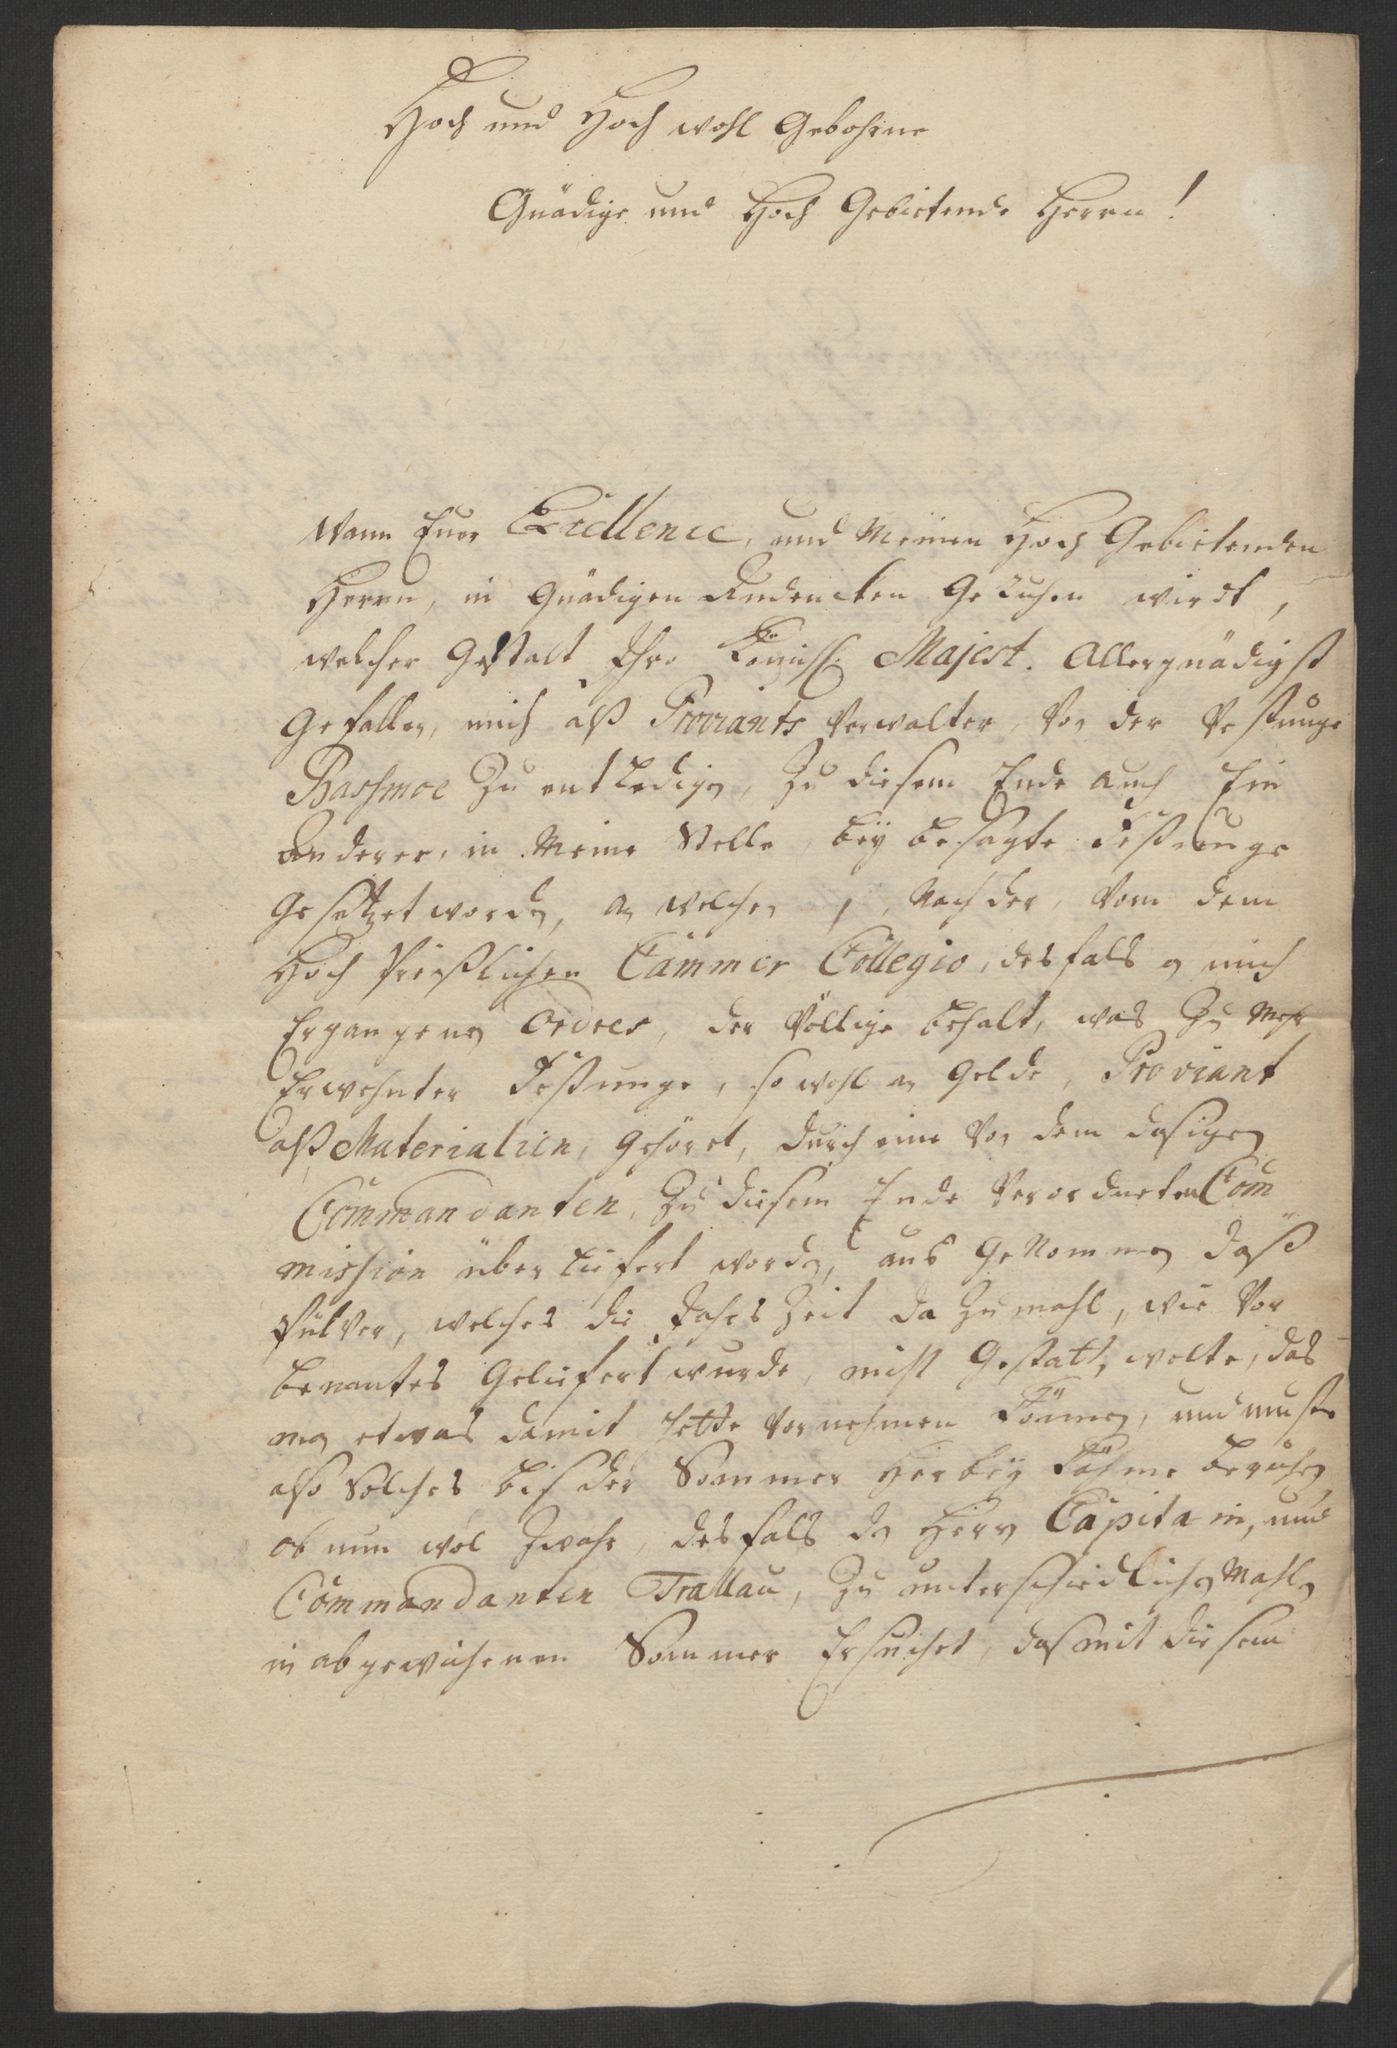 Hoch und Hoch wohl Gebohrne
Gnädige und Hoch Gebietende Herren!
Wann Euer Excellence, und Meinen Hoch Gebietenden
Herren, in Gnädigen Andencken Geruhen wirdt,
welcher Gestalt Ihro Königl. Majest. Allergnädigst
Gefallen, mich alß Proviants Verwalter, Von der Vestunge
Bassmoe Zu entledigen, Zu diesem Ende auch Ein
Anderer, in Meine Stelle, beÿ besagte Festunge
Gesetzet worden, an welchen, Nach der, Vom dem
Hoch Preißlichen Cammer Collegio, desfals an mich
Ergangenen Ordres, der Völlige behalt, was Zu Mehr
Erwehnter Festunge, so wohl an Gelde, Proviant
alß Materialien, Gehöret, durch eine Von dem dasigen
Commandanten, Zu diesem Ende Verordneten Com
mission überliefert worden, aus Genommen daß
Pulver, welches die Jahres Zeit da Zumahl, wie Vor
benantes Geliefert wurde, nicht Gestatten wolte, das
man etwas damit hette Vornehmen Können, und muste
also Solches biß der Sommer Herbeÿ Kähme beruhen
ob nun wol Zwahr, desfals den Herrn Capitain, und
Commandanten Trallau, Zu unterschiedlichen Mahlen
in abgewichenen Sommer Ersuchet, das mit diesem